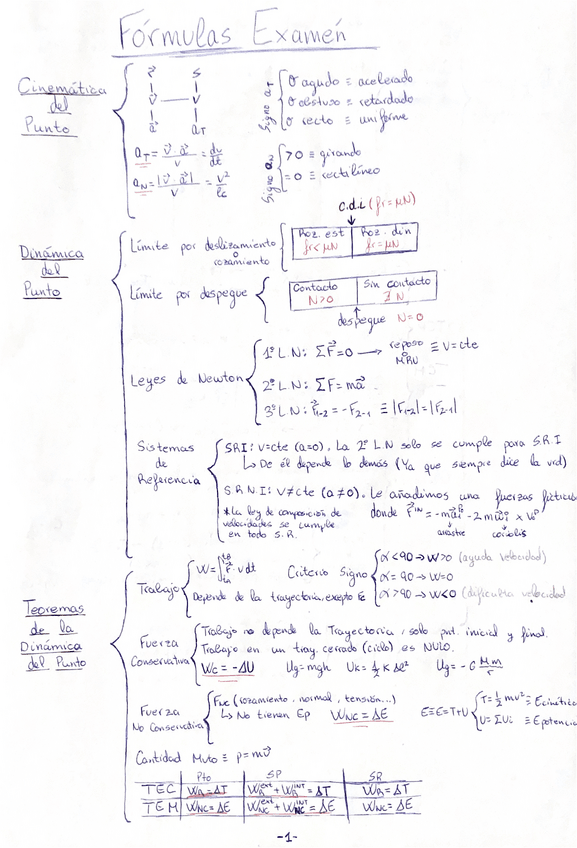 Fórmulas Examen
Cinemática del Punto
r⃗ s
v⃗ — v
a⃗ a_T
a_T = v⃗·a⃗/v = dv/dt
a_N = |v⃗ × a⃗|/v = v²/ρc
Signo a_T
σ agudo ≡ acelerado
σ obtuso ≡ retardado
σ recto ≡ uniforme
Signo a_N
>0 ≡ girando
=0 ≡ rectilíneo
Dinámica del Punto
c.d.l (fr=μN)
Límite por deslizamiento o rozamiento
Roz. est fr<μN
Roz. din fr=μN
Límite por despegue
Contacto N>0
Sin contacto ∄ N
despegue N=0
Leyes de Newton
1ª L.N: ΣF⃗=0 → reposo o MRU ≡ v=cte
2ª L.N: ΣF=ma⃗
3ª L.N: F⃗1-2 = -F2-1 ≡ |F1-2|=|F2-1|
Sistemas de Referencia
SRI: v=cte (a=0). La 2ª L.N solo se cumple para S.R.I
↳ De él depende lo demás (Ya que siempre dice la vrd)
S.R.N.I: v≠cte (a≠0). Le añadimos una fuerzas ficticias
* La ley de composición de
velocidades se cumple
en todo S.R.
donde F^IN = -ma⃗ -2mω⃗ × v
arrastre coriolis
Teoremas de la Dinámica del Punto
Trabajo
W=∫ F⃗·v dt
Depende de la trayectoria, exepto Fc
Criterio Signo
α<90→W>0 (ayuda velocidad)
α=90→W=0
α>90→W<0 (dificulta velocidad
Fuerza Conservativa
Trabajo no depende la Trayectoria, solo pnt. inicial y final.
Trabajo en un tray. cerrado (ciclo) es NULO.
Wc = -ΔU Ug=mgh Uk=½ K Δl² Ug= -G Mm/r
Fuerza No Conservativa
Fnc (rozamiento, normal, tensión...)
↳ No tienen Ep W_NC = ΔE
E≡E=T+U
T=½mv² ≡ Ecinética
U=ΣUi ≡ Epotencia
Cantidad Mvto ≡ p=mv⃗
Pto SP SR
TEC W_R=ΔT W_R^ext + W_R^INT = ΔT W_R=ΔT
TEM W_NC=ΔE W_NC^ext + W_NC^INT = ΔE W_NC=ΔE
-1-